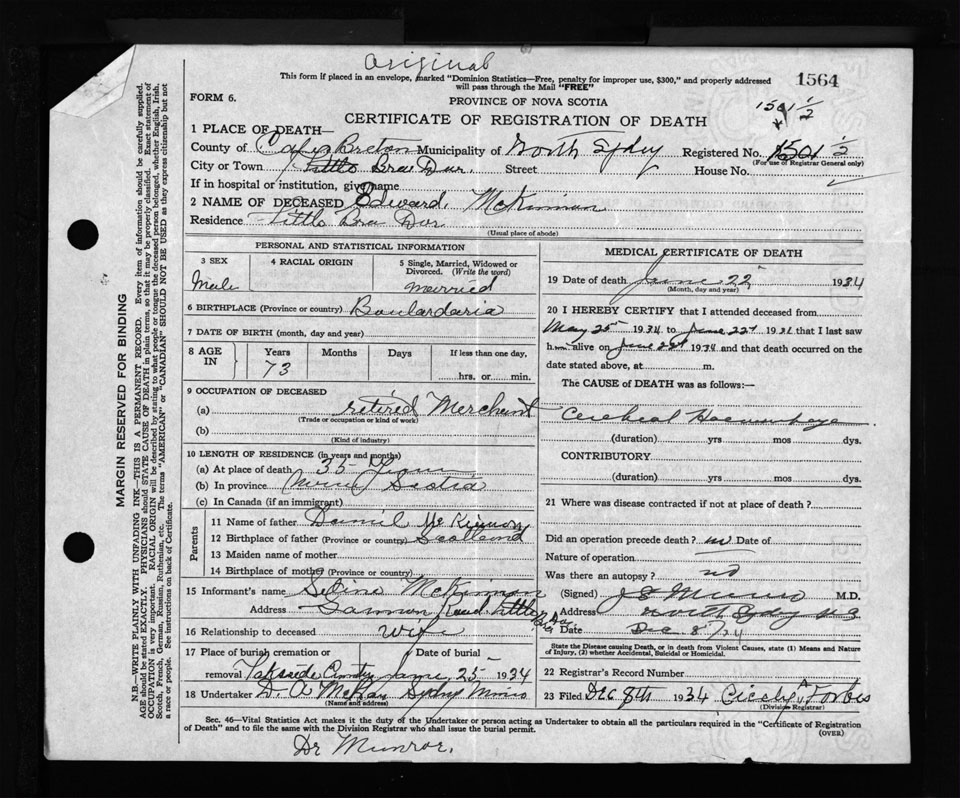 Original
This form if placed in an envelope, marked "Dominion Statistics—Free, penalty for improper use, $300," and properly addressed
will pass through the Mail "FREE"
1564
FORM 6.
PROVINCE OF NOVA SCOTIA
1501 1/2
CERTIFICATE OF REGISTRATION OF DEATH
1 PLACE OF DEATH—
County of Cape Breton Municipality of North Sydney Registered No. 1501 1/2
(For use of Registrar General only)
City or Town Little Bra Dor Street House No.
If in hospital or institution, give name
2 NAME OF DECEASED Edward McKinnon
Residence Little Bra Dor
(Usual place of abode)
PERSONAL AND STATISTICAL INFORMATION
3 SEX 4 RACIAL ORIGIN 5 Single, Married, Widowed or Divorced. (Write the word)
Male Married
6 BIRTHPLACE (Province or country) Boulardaria
7 DATE OF BIRTH (month, day and year)
8 AGE IN Years Months Days If less than one day,
73 hrs. or min.
9 OCCUPATION OF DECEASED
(a) retired Merchant
(Trade or occupation or kind of work)
(b)
(Kind of industry)
10 LENGTH OF RESIDENCE (in years and months)
(a) At place of death 35 Years
(b) In province Nova Scotia
(c) In Canada (if an immigrant)
Parents
11 Name of father Daniel McKinnon
12 Birthplace of father (Province or country) Scotland
13 Maiden name of mother
14 Birthplace of mother (Province or country)
15 Informant's name Selina McKinnon
Address Road Little Bra Dor
16 Relationship to deceased Wife
17 Place of burial cremation or removal Date of burial
June 25 1934
18 Undertaker D. A. McKay Sydney Mines
(Name and address)
MEDICAL CERTIFICATE OF DEATH
19 Date of death June 22 1934
(Month, day and year)
20 I HEREBY CERTIFY that I attended deceased from
May 25 1934 to June 22 1934 that I last saw
him alive on June 22 1934 and that death occurred on the
date stated above, at m.
The CAUSE of DEATH was as follows:—
Cerebral Haemorrhage
(duration) yrs mos dys.
CONTRIBUTORY
(duration) yrs mos dys.
21 Where was disease contracted if not at place of death?
Did an operation precede death? no Date of
Nature of operation
Was there an autopsy? no
(Signed) M.D.
Address North Sydney N S
Date Dec 8/34
State the Disease causing Death, or in death from Violent Causes, state (1) Means and Nature
of Injury, (2) whether Accidental, Suicidal or Homicidal.
22 Registrar's Record Number
23 Filed Dec 8th 1934 Forbes
(Division Registrar)
Sec. 46—Vital Statistics Act makes it the duty of the Undertaker or person acting as Undertaker to obtain all the particulars required in the "Certificate of Registration
of Death" and to file the same with the Division Registrar who shall issue the burial permit. (OVER)
Dr Munroe.
MARGIN RESERVED FOR BINDING
N.B.—WRITE PLAINLY WITH UNFADING INK—THIS IS A PERMANENT RECORD. Every item of information should be carefully supplied.
AGE should be stated EXACTLY. PHYSICIANS should STATE CAUSE OF DEATH in plain terms, so that it may be properly classified. Exact statement of
OCCUPATION is very important. RACIAL ORIGIN will be described by stating to what people or tongue the deceased person belonged, whether English, Irish,
Scotch, French, German, Russian, Ruthenian, etc. The terms "AMERICAN" or "CANADIAN" SHOULD NOT BE USED as they express citizenship but not
a race or people. See instructions on back of Certificate.